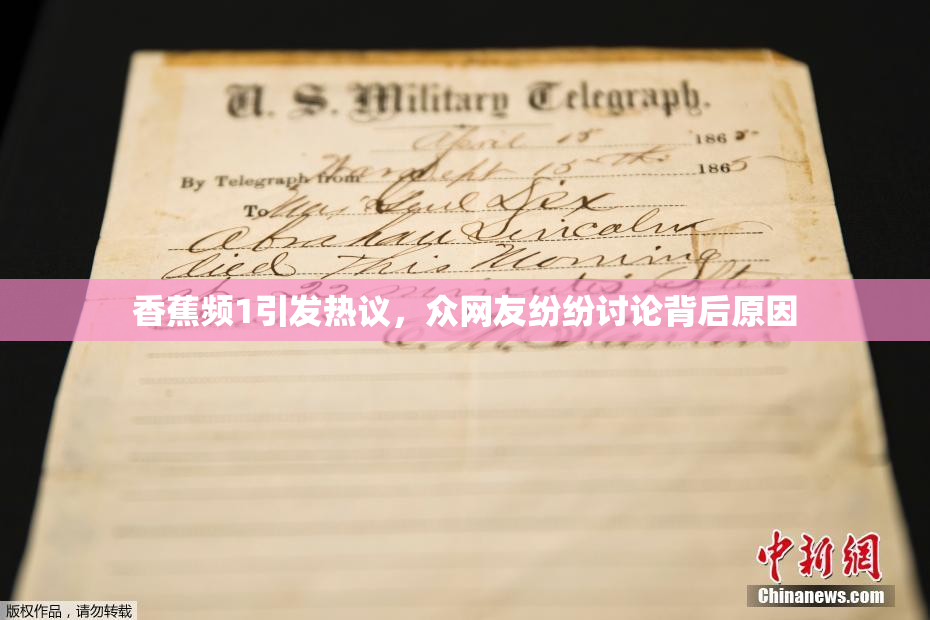 U. S. Military Telegraph.
April 15 1865
By Telegraph from War Dept 15th 1865
To Maj Genl Dix
Abraham Lincoln
died This Morning
at 22 minutes after
香蕉频1引发热议，众网友纷纷讨论背后原因
E. M. Stanton
中新网
Chinanews.com
版权作品，请勿转载